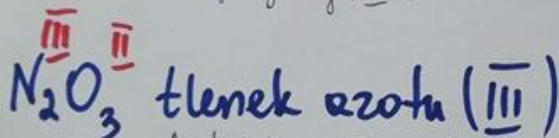 III II
N₂O₃ tlenek azotu (III)